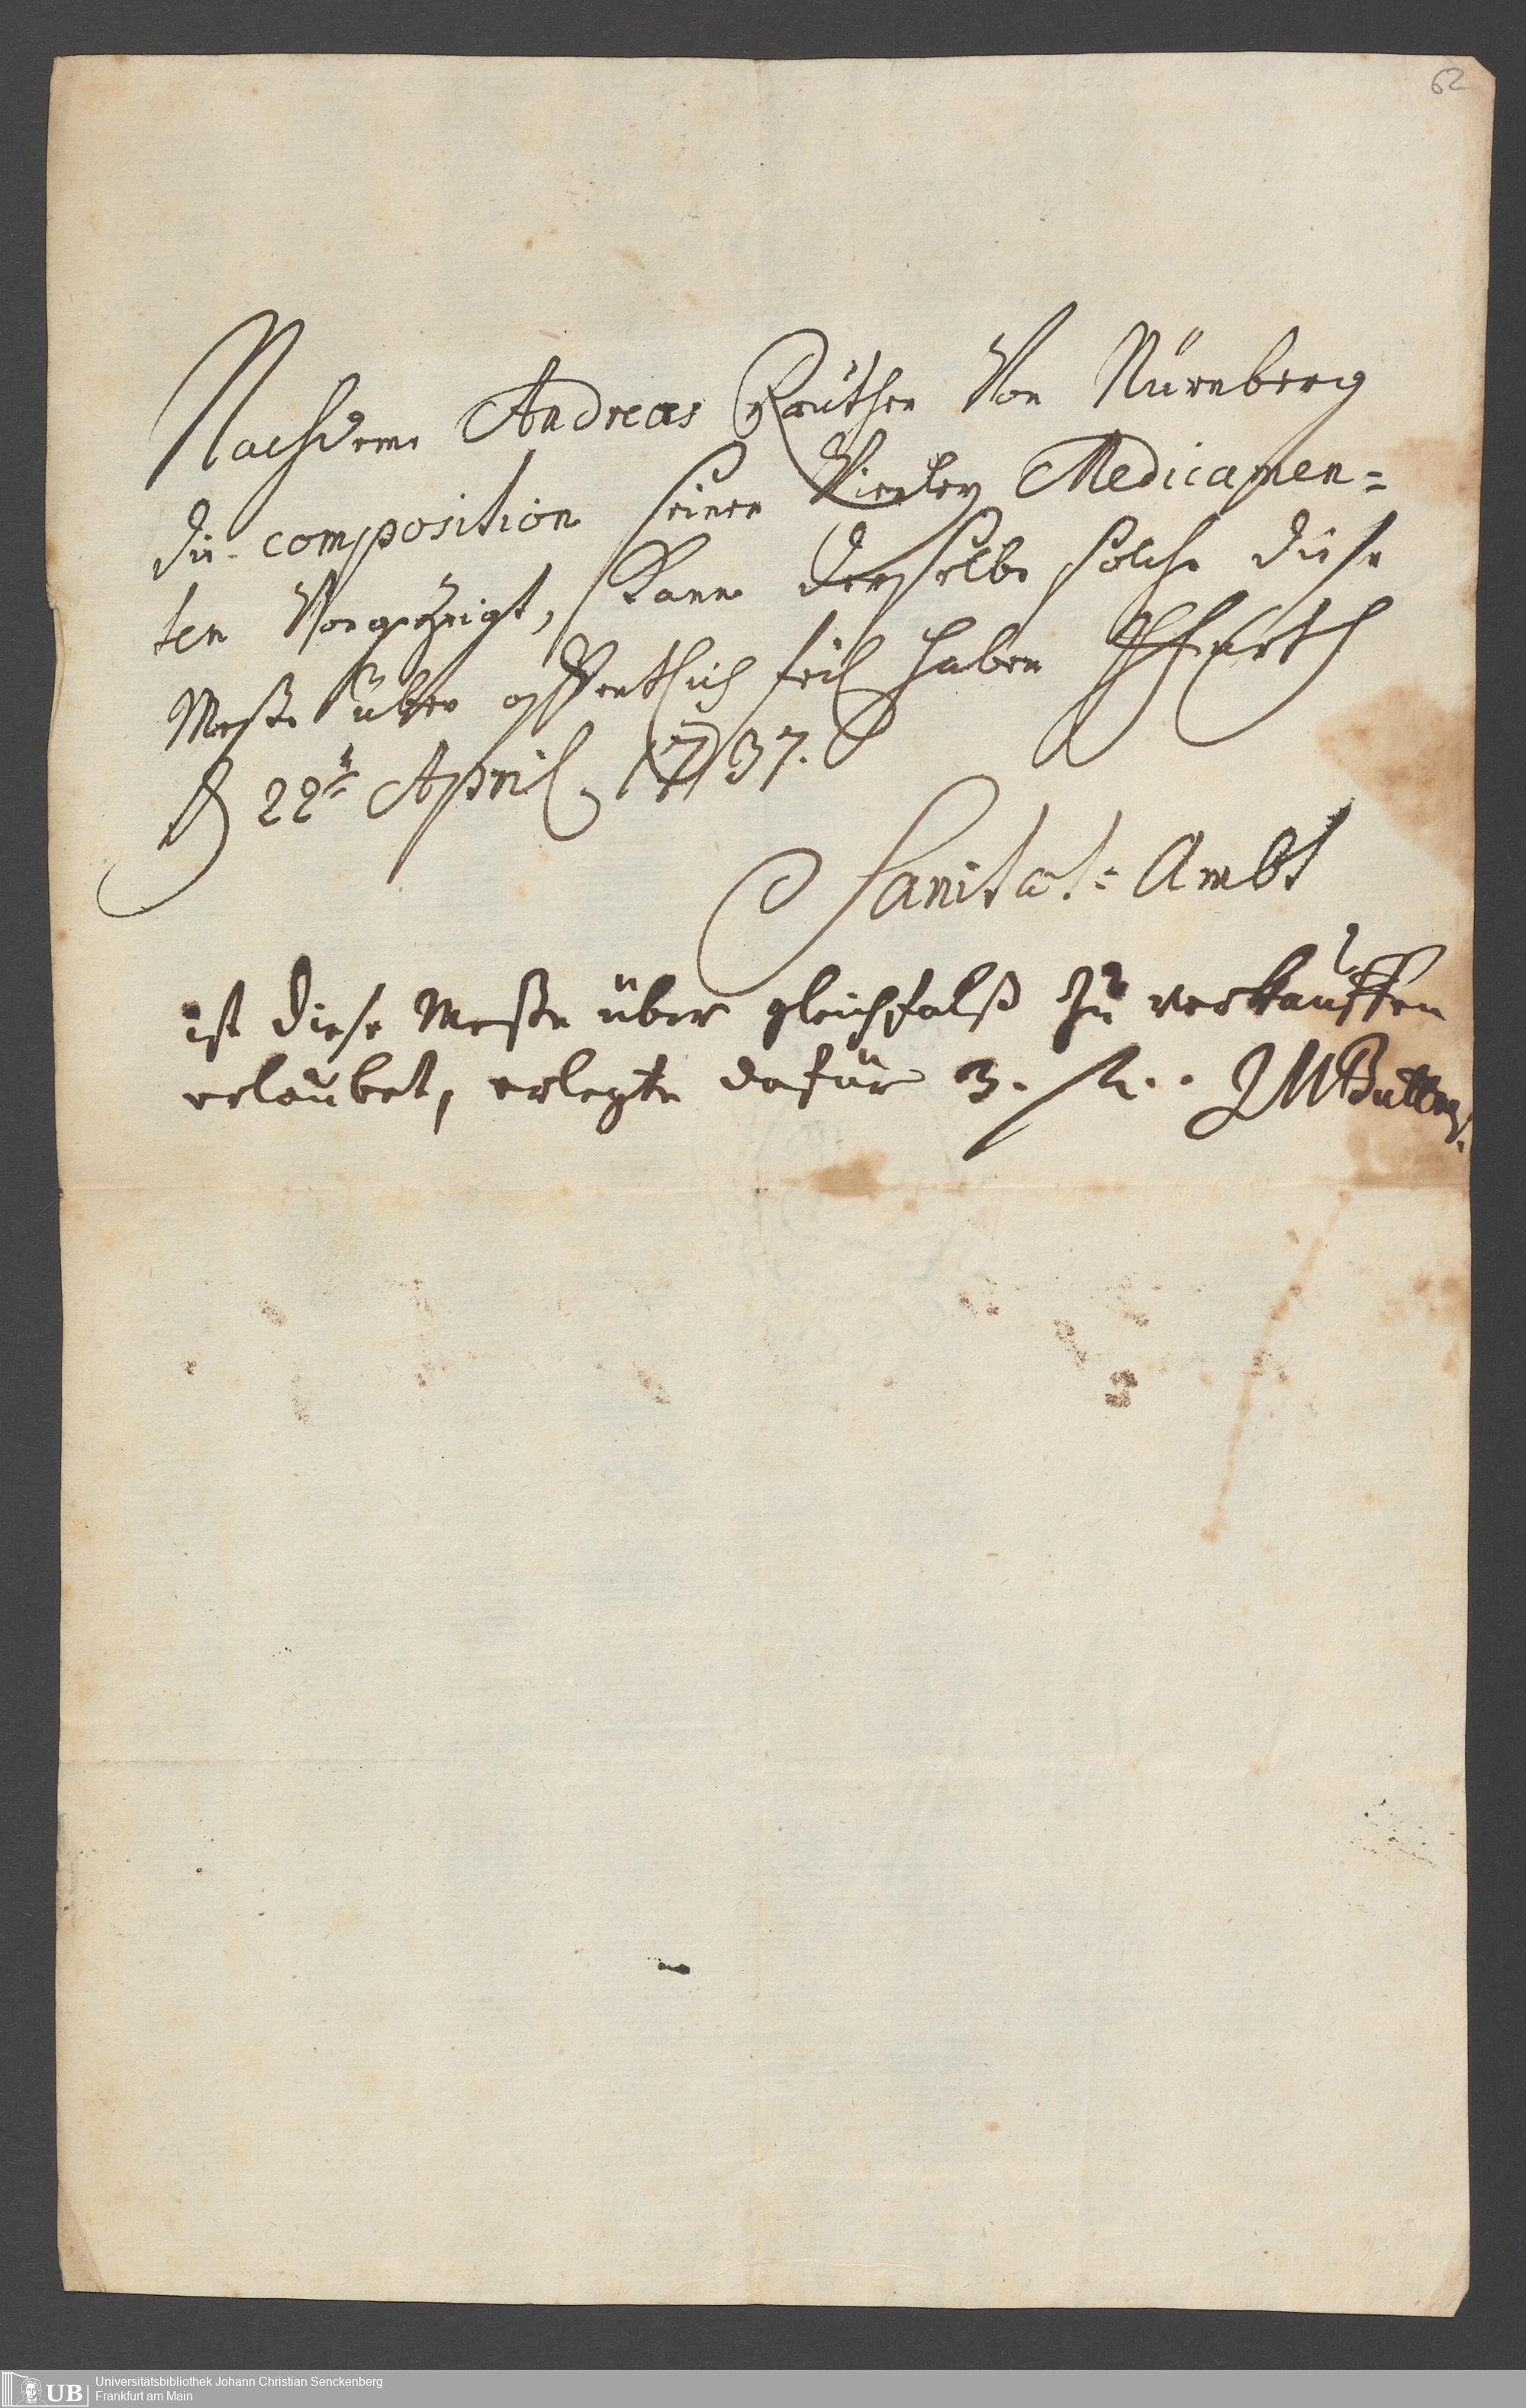 62
Nachdeme Andreas Reuther Von Nürnberg
die composition seiner Vierley Medicamen=
ten Vorgezeigt, Kann derselbe solche diese
Meße über offentlich feil haben
d 22ten April. 1737.
Sanitat=Ambt
ist diese Meße über gleichfalß zu verkauffen
erlaubet, erlegte dafür 3. fl..
UB
Universitätsbibliothek Johann Christian Senckenberg
Frankfurt am Main